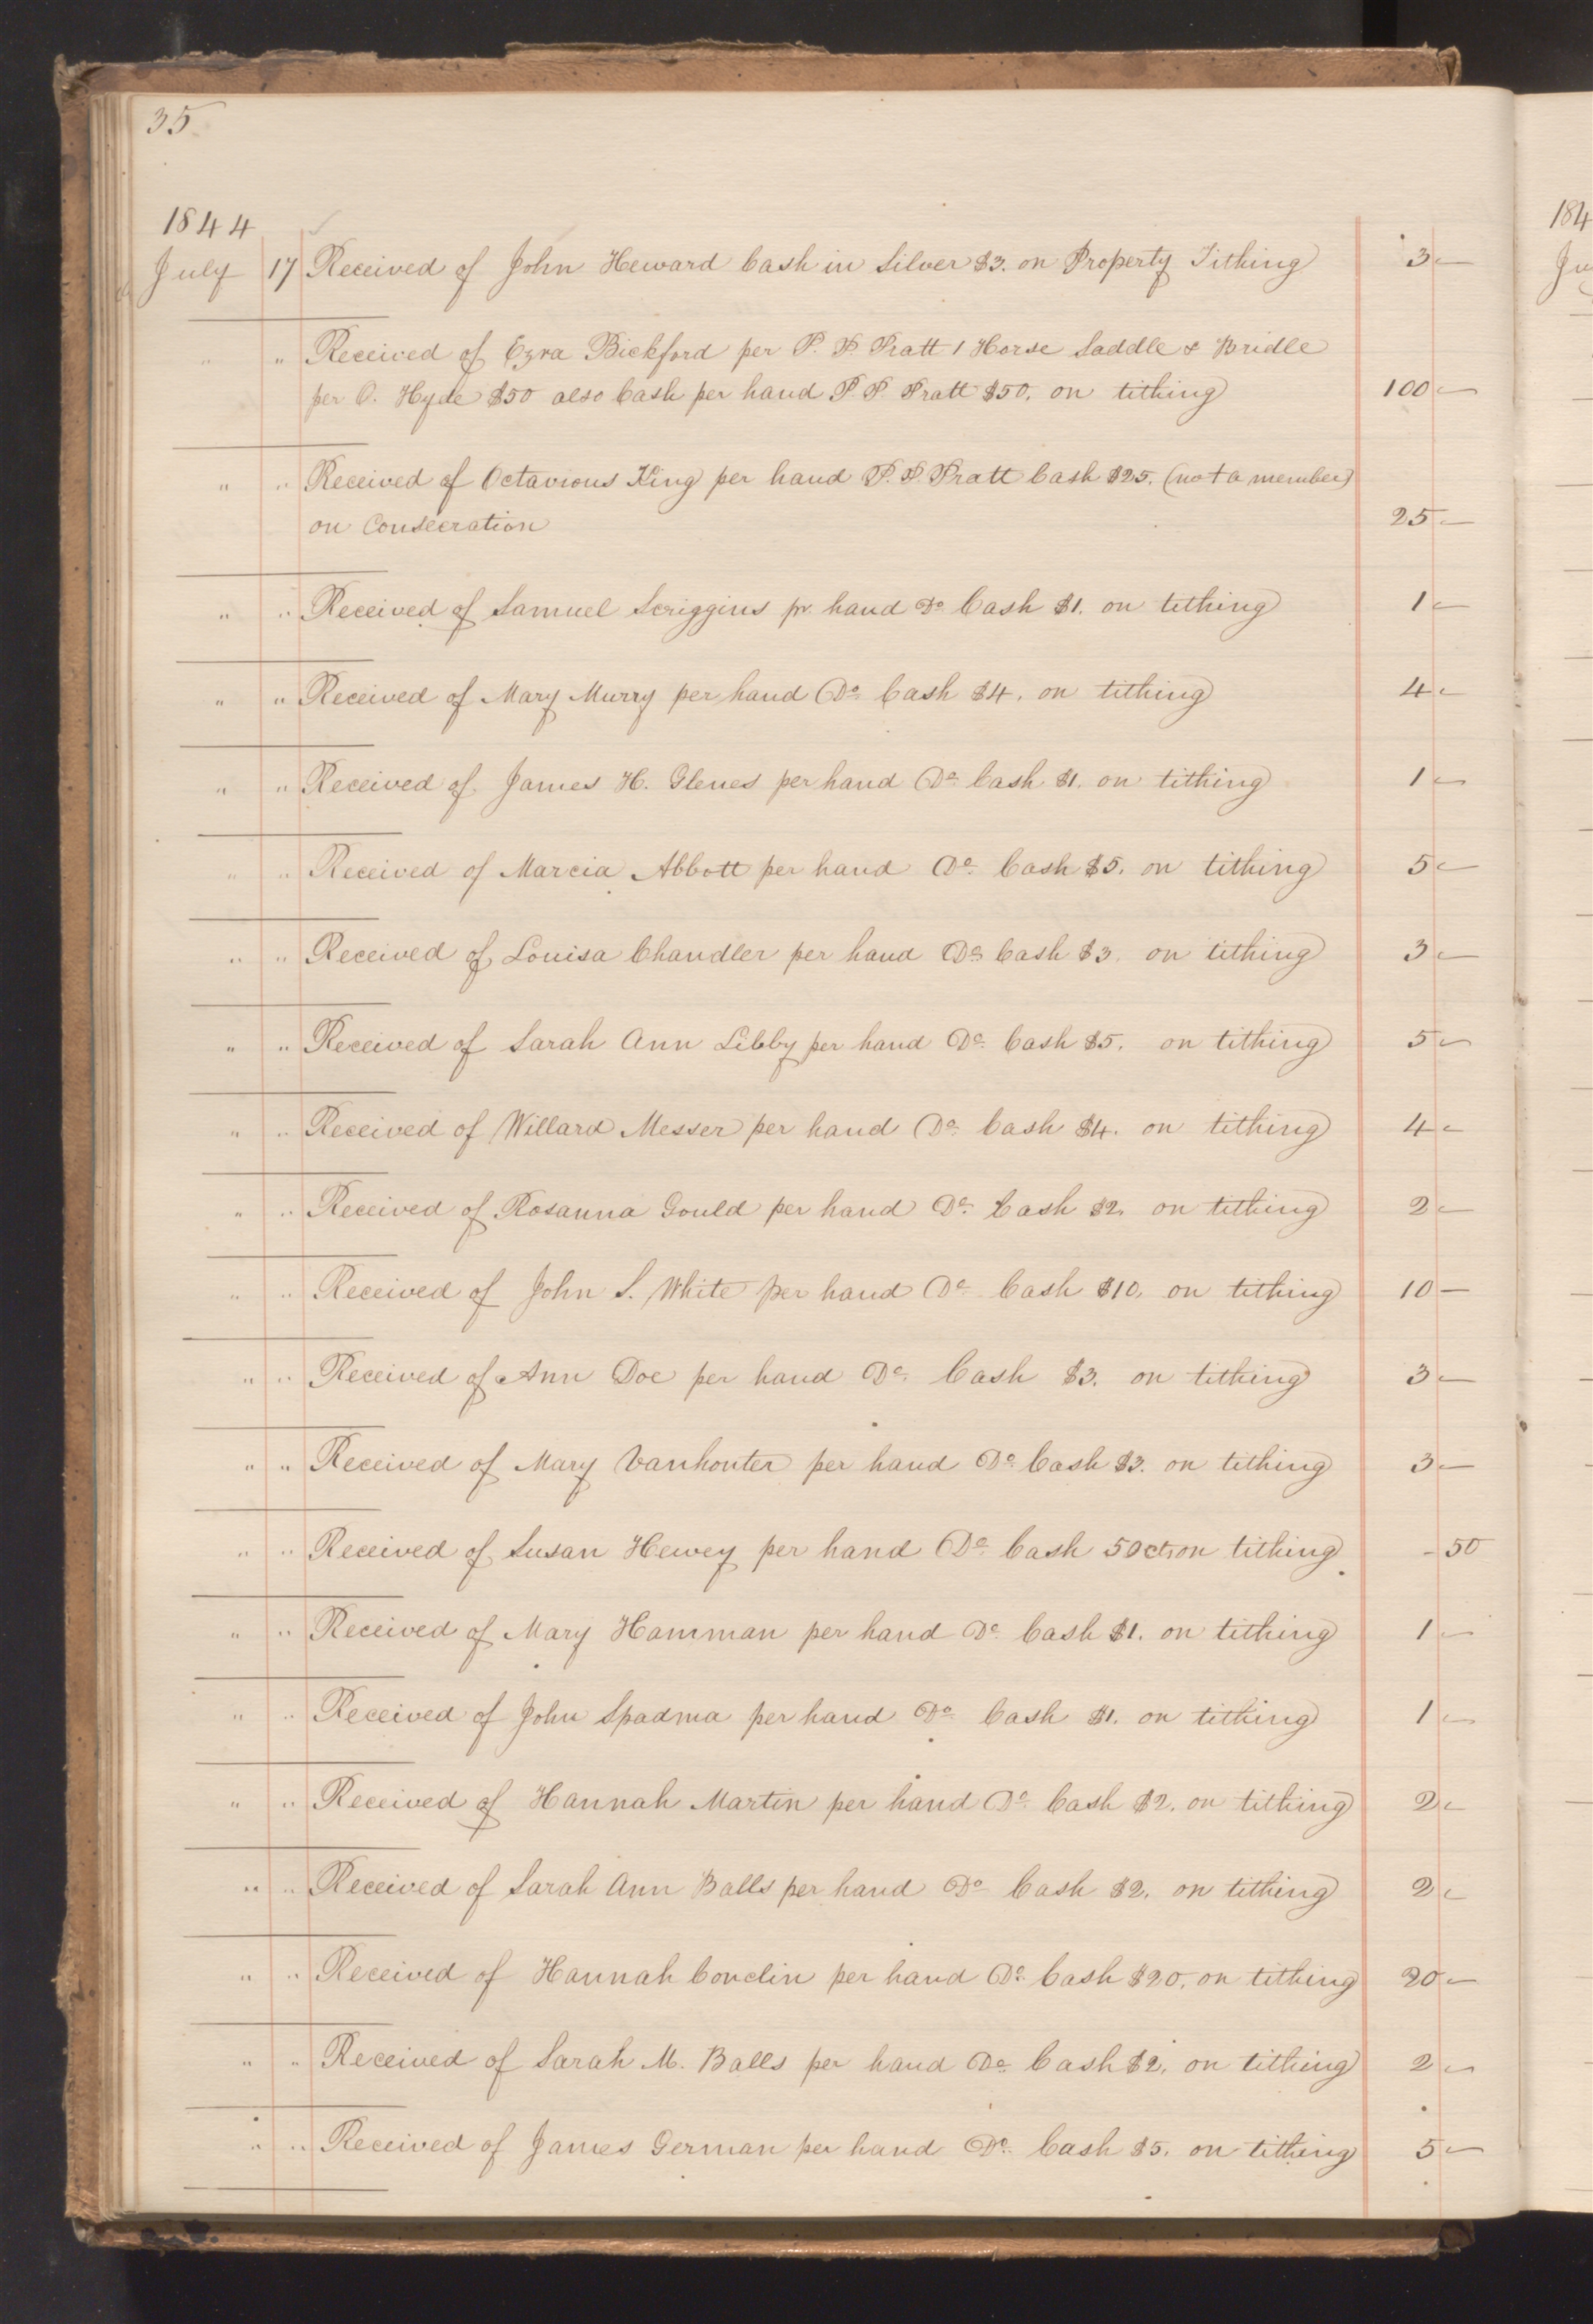 35
1844
July 17 Received of John Heward Cash in Silver $3. on Property Tithing 3 —
" " Received of Ezra Bickford per P. P. Pratt 1 Horse Saddle & Bridle
per O. Hyde $50 also Cash per hand P. P. Pratt $50. on tithing 100 —
" " Received of Octavious King per hand P. P. Pratt Cash $25. (not a member)
on Consecration 25 —
" " Received of Samuel Scriggins pr. hand Do. Cash $1. on tithing 1 —
" " Received of Mary Murry per hand Do. Cash $4. on tithing 4 —
" " Received of James H. Glenes per hand Do. Cash $1. on tithing 1 —
" " Received of Marcia Abbott per hand Do. Cash $5. on tithing 5 —
" " Received of Louisa Chandler per hand Do. Cash $3. on tithing 3 —
" " Received of Sarah Ann Libby per hand Do. Cash $5. on tithing 5 —
" " Received of Willard Messer per hand Do. Cash $4. on tithing 4 —
" " Received of Rosanna Gould per hand Do. Cash $2. on tithing 2 —
" " Received of John S. White per hand Do. Cash $10. on tithing 10 —
" " Received of Ann Doe per hand Do. Cash $3. on tithing 3 —
" " Received of Mary Vanhouter per hand Do. Cash $3. on tithing 3 —
" " Received of Susan Hewey per hand Do. Cash 50cts on tithing - 50
" " Received of Mary Hamman per hand Do. Cash $1. on tithing 1 —
" " Received of John Spadma per hand Do. Cash $1. on tithing 1 —
" " Received of Hannah Martin per hand Do. Cash $2. on tithing 2 —
" " Received of Sarah Ann Balls per hand Do. Cash $2. on tithing 2 —
" " Received of Hannah Conclin per hand Do. Cash $20. on tithing 20 —
" " Received of Sarah M. Balls per hand Do. Cash $2. on tithing 2 —
" " Received of James German per hand Do. Cash $5. on tithing 5 —
184